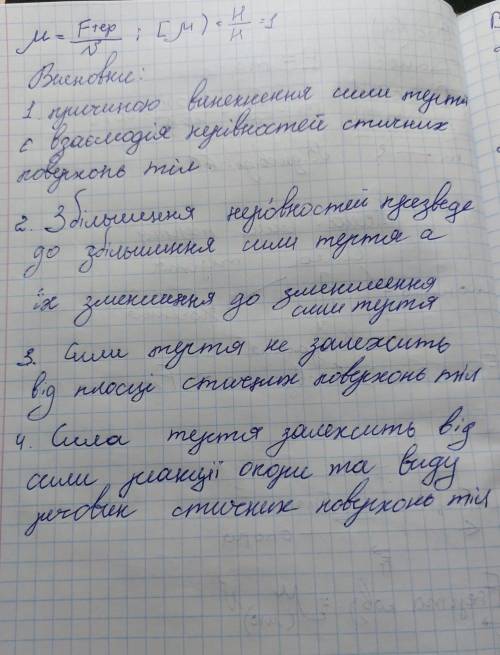 μ = Fтер/N ; [μ] = Н/Н = 1
Висновки:
1. причиною виникнення сили тертя
є взаємодія нерівностей стичних
поверхонь тіл
2. Збільшення нерівностей призведе
до збільшення сили тертя а
їх зменшення до зменшення
сили тертя
3. Сили тертя не залежить
від площі стичних поверхонь тіл
4. Сила тертя залежить від
сили реакції опори та виду
речовин стичних поверхонь тіл